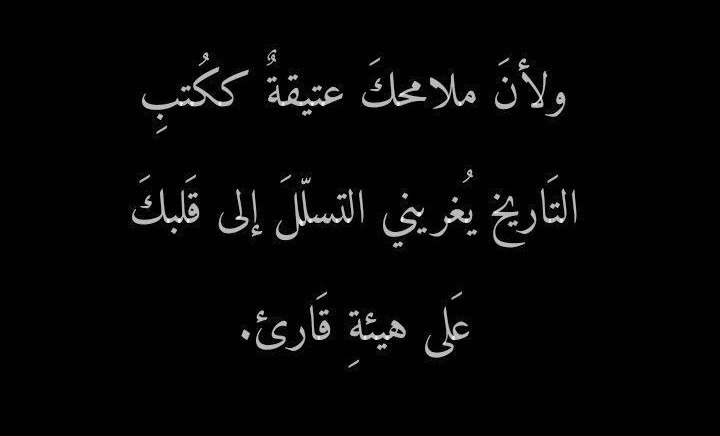 ولأنَ ملامحكَ عتيقةٌ ككُتبِ
التَاريخ يُغريني التسلّلَ إلى قَلبكَ
عَلى هيئةِ قَارئ.